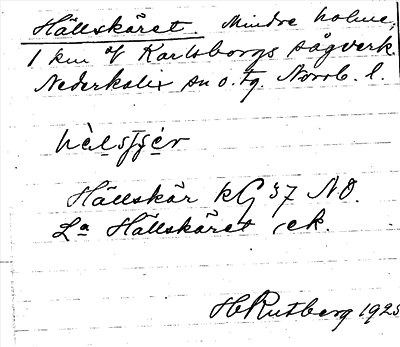 Hällskäret. Mindre holme,
1 km öf Karlsborgs sågverk.
Nederkalix sn o. tg. Norrb. l.
Hällskär kG 37 NO.
La Hällskäret ek.
HRutberg 1925